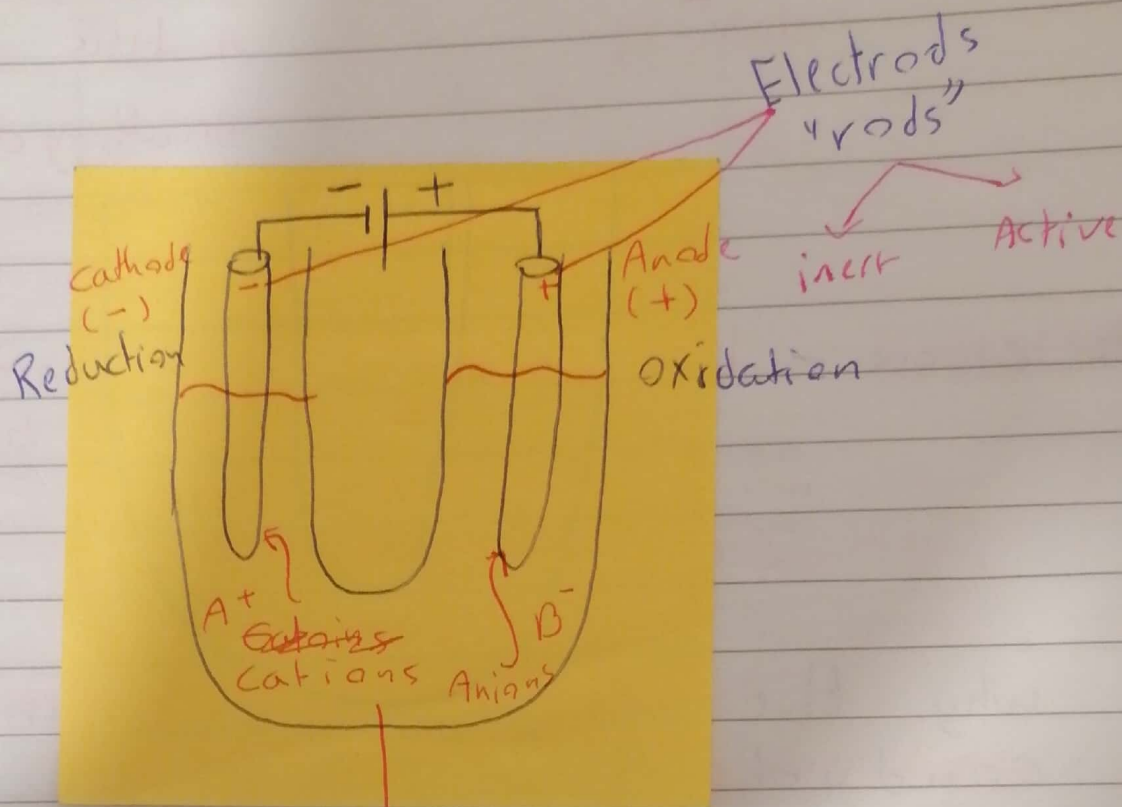 Electrods
"rods"
inert
Active
- +
Cathode
(-)
Reduction
-
+
Anode
(+)
Oxidation
A+
cations
B-
Anions